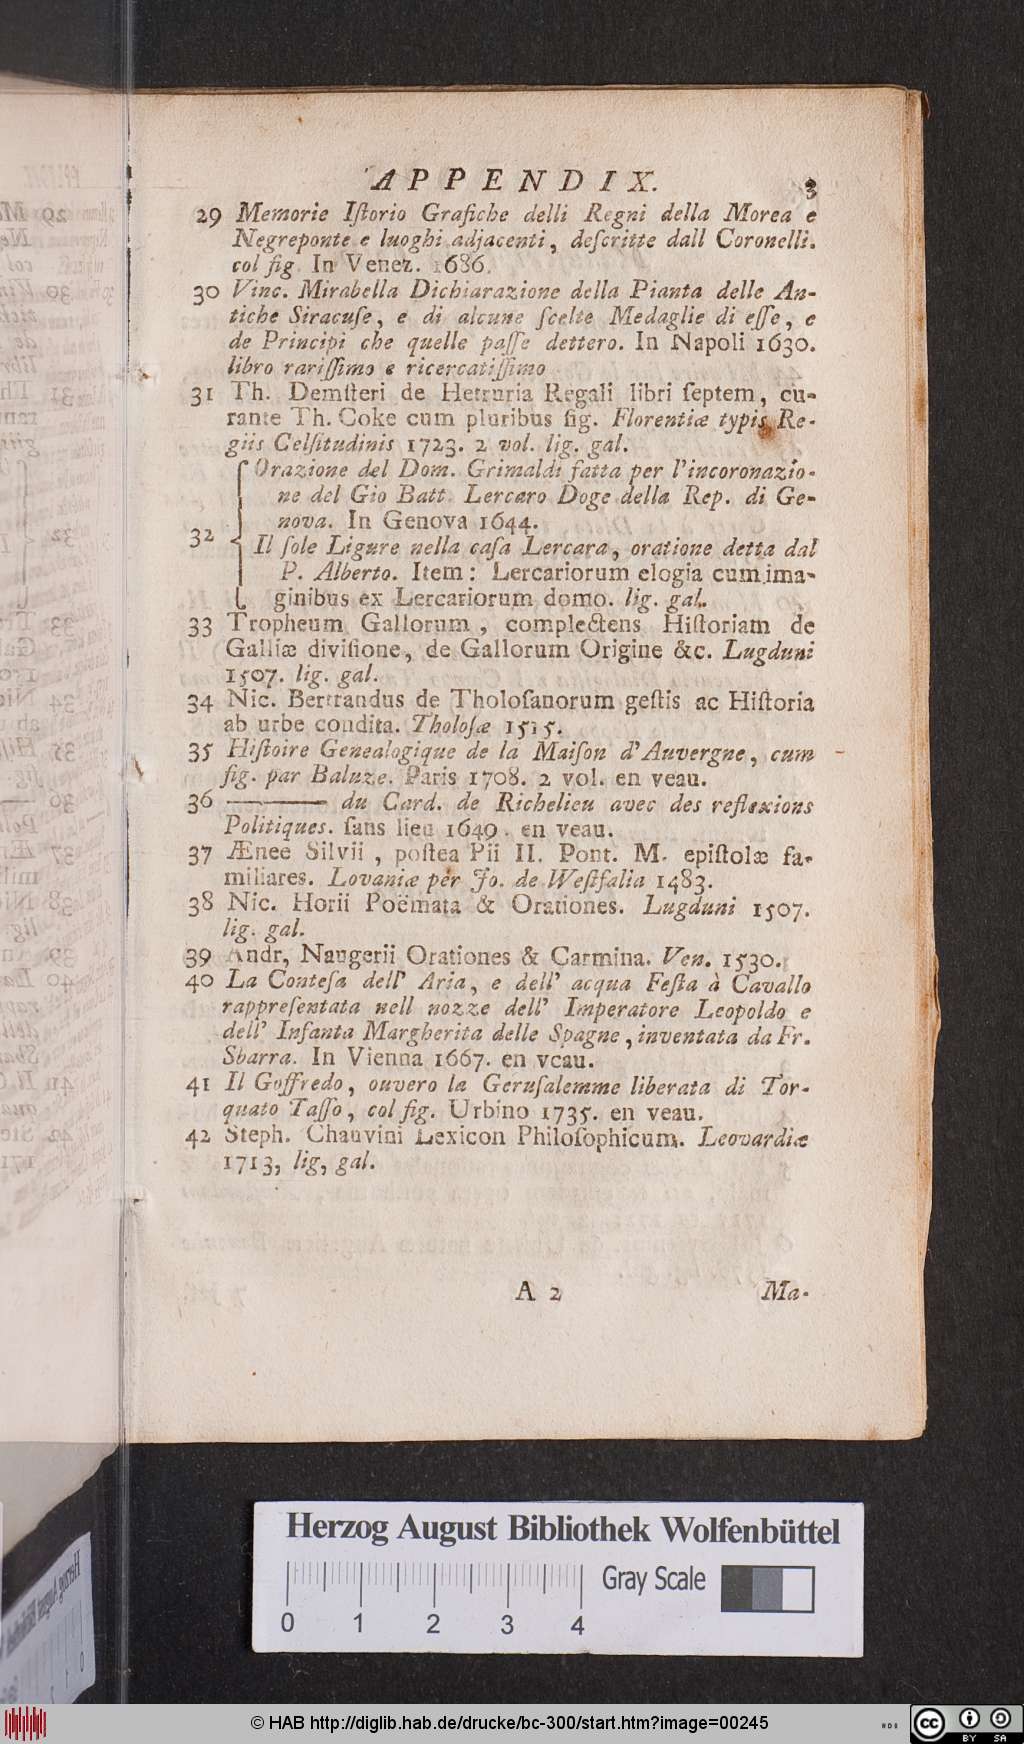 APPENDIX. 3
29 Memorie Iſtorio Grafiche delli Regni della Morea e
Negreponte e luoghi adjacenti, deſcritte dall Coronelli.
col fig. In Venez. 1686.
30 Vinc. Mirabella Dichiarazione della Pianta delle An-
tiche Siracuſe, e di alcune ſcelte Medaglie di eſſe, e
de Principi che quelle paſſe dettero. In Napoli 1630.
libro rariſſimo e ricercatiſſimo
31 Th. Demſteri de Hetruria Regali libri ſeptem, cu-
rante Th. Coke cum pluribus fig. Florentiæ typis Re-
giis Celſitudinis 1723. 2 vol. lig. gal.
Orazione del Dom. Grimaldi fatta per l'incoronazio-
ne del Gio Batt. Lercaro Doge della Rep. di Ge-
nova. In Genova 1644.
32 Il ſole Ligure nella caſa Lercara, oratione detta dal
P. Alberto. Item: Lercariorum elogia cum ima-
ginibus ex Lercariorum domo. lig. gal.
33 Tropheum Gallorum, complectens Hiſtoriam de
Galliæ diviſione, de Gallorum Origine &c. Lugduni
1507. lig. gal.
34 Nic. Bertrandus de Tholoſanorum geſtis ac Hiſtoria
ab urbe condita. Tholoſæ 1515.
35 Hiſtoire Genealogique de la Maiſon d'Auvergne, cum
fig. par Baluze. Paris 1708. 2 vol. en veau.
36 ——— du Card. de Richelieu avec des reflexions
Politiques. ſans lieu 1649. en veau.
37 Ænee Silvii, poſtea Pii II. Pont. M. epiſtolæ fa-
miliares. Lovaniæ per Jo. de Weſtfalia 1483.
38 Nic. Horii Poëmata & Orationes. Lugduni 1507.
lig. gal.
39 Andr, Naugerii Orationes & Carmina. Ven. 1530.
40 La Conteſa dell' Aria, e dell' acqua Feſta à Cavallo
rappreſentata nell nozze dell' Imperatore Leopoldo e
dell' Infanta Margherita delle Spagne, inventata da Fr.
Sbarra. In Vienna 1667. en veau.
41 Il Goffredo, ouvero la Geruſalemme liberata di Tor-
quato Taſſo, col fig. Urbino 1735. en veau.
42 Steph. Chauvini Lexicon Philoſophicum. Leovardiæ
1713, lig, gal.
A 2 Ma-
Herzog August Bibliothek Wolfenbüttel
Gray Scale
0 1 2 3 4
© HAB http://diglib.hab.de/drucke/bc-300/start.htm?image=00245
cc BY SA